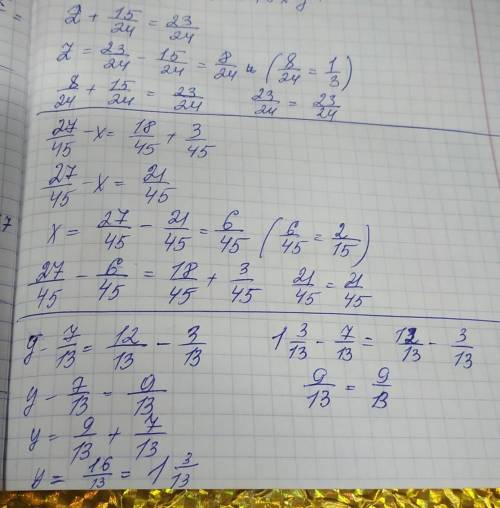 z + 15/24 = 23/24
z = 23/24 - 15/24 = 8/24 (8/24 = 1/3)
8/24 + 15/24 = 23/24 23/24 = 23/24
27/45 - x = 18/45 + 3/45
27/45 - x = 21/45
x = 27/45 - 21/45 = 6/45 (6/45 = 2/15)
27/45 - 6/45 = 18/45 + 3/45 21/45 = 21/45
y - 7/13 = 12/13 - 3/13 1 3/13 - 7/13 = 12/13 - 3/13
y - 7/13 = 9/13 9/13 = 9/13
y = 9/13 + 7/13
y = 16/13 = 1 3/13